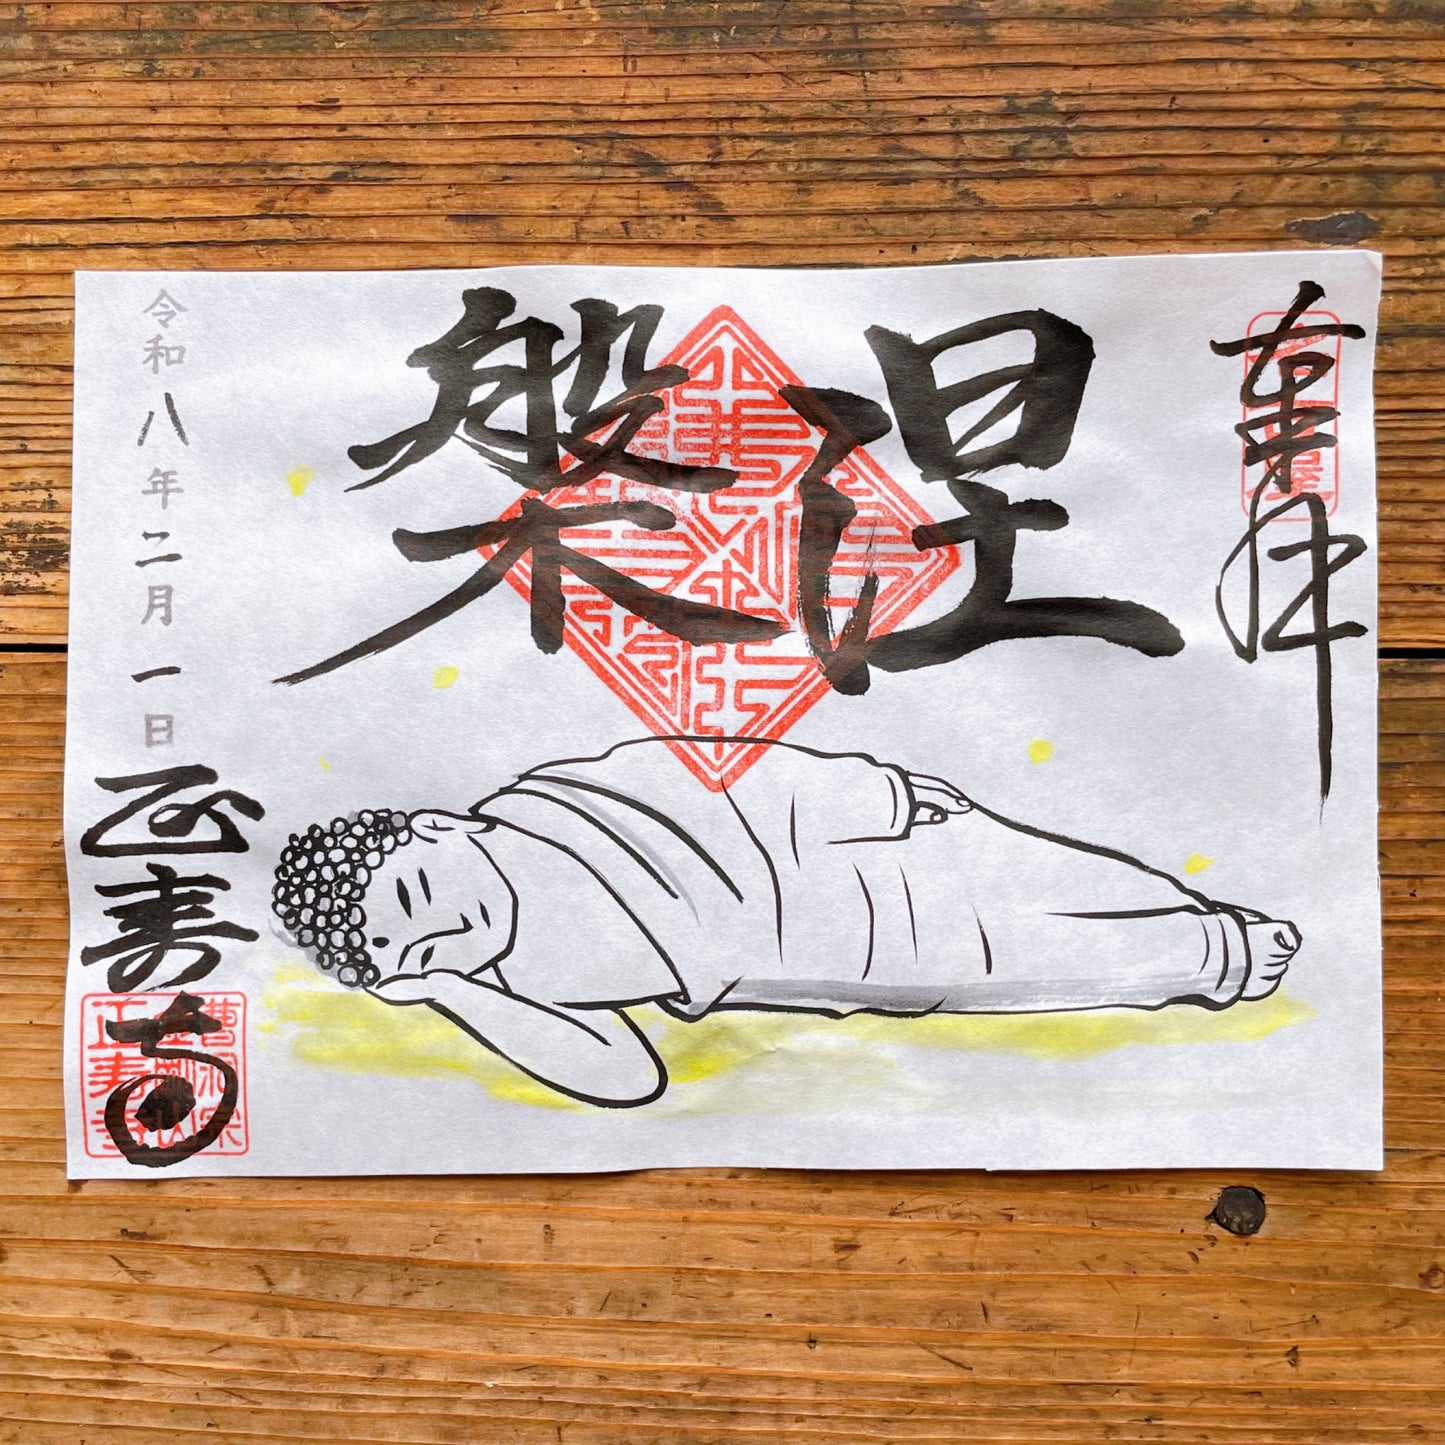 奉拝
涅槃
令和八年二月一日
正寿寺
曹洞宗
正寿寺